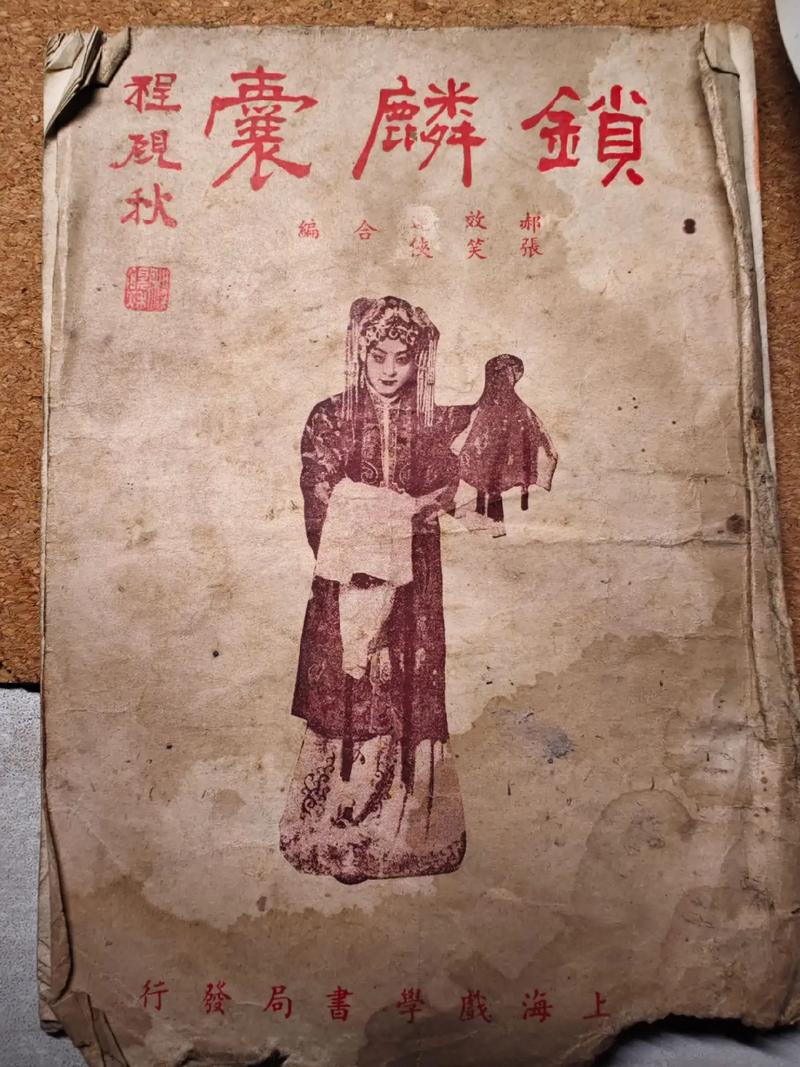 鎖麟囊
程硯秋
郝效
張笑俠
合編
上海戲學書局發行